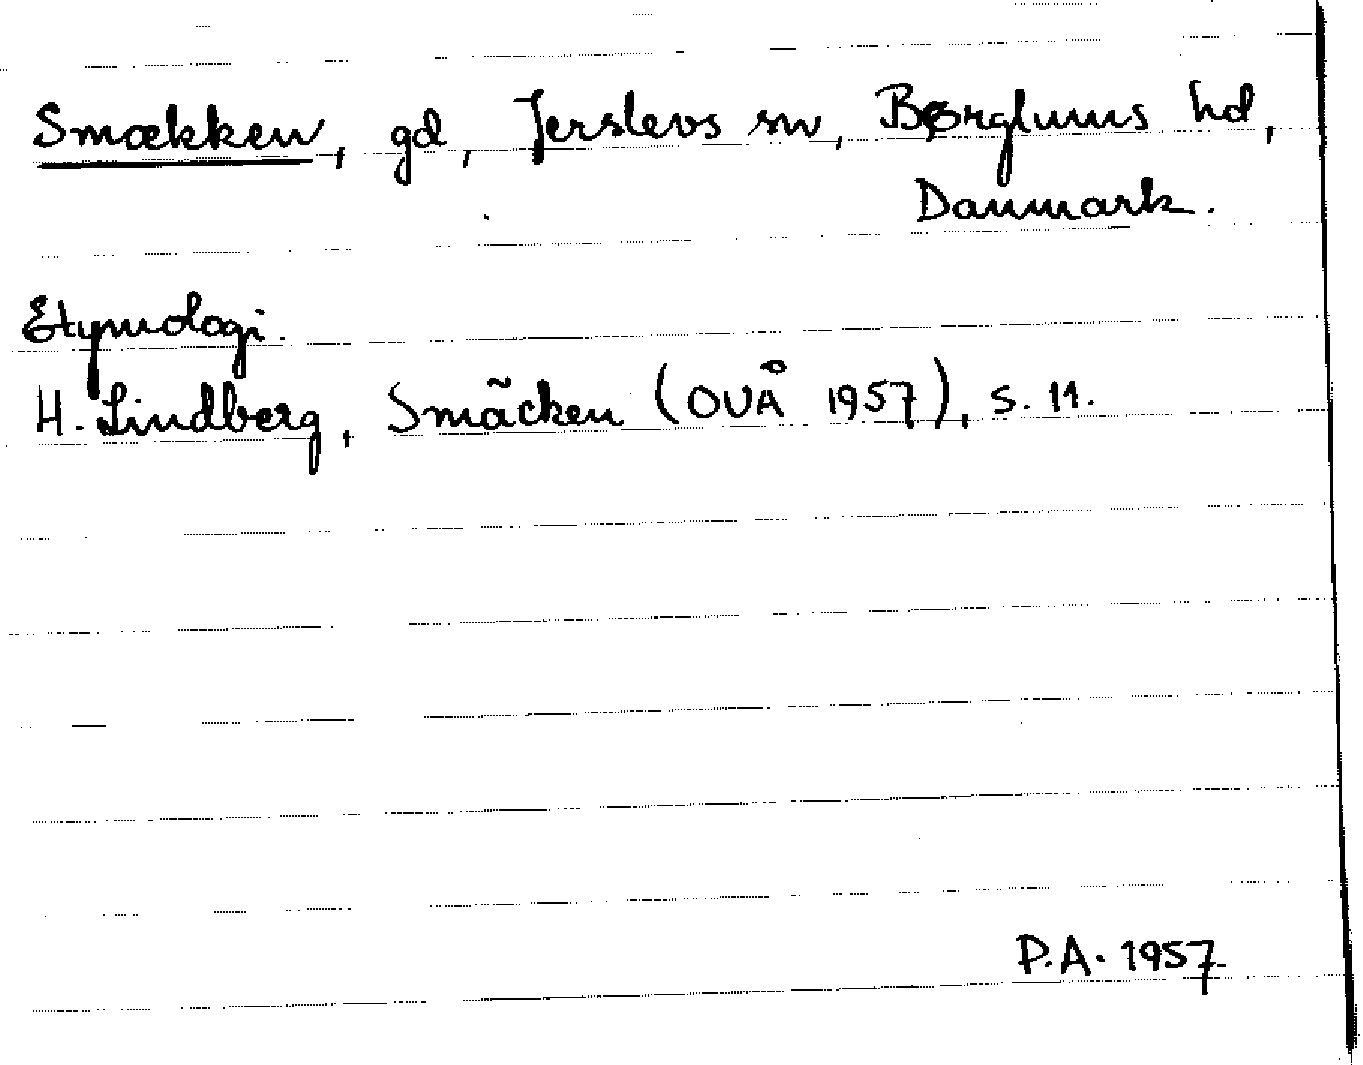 Smækken, gd, Jerslevs sn, Børglums hd,
Danmark.
Etymologi.
H. Lindberg, Smäcken (OUÅ 1957), s. 11.
P.A. 1957